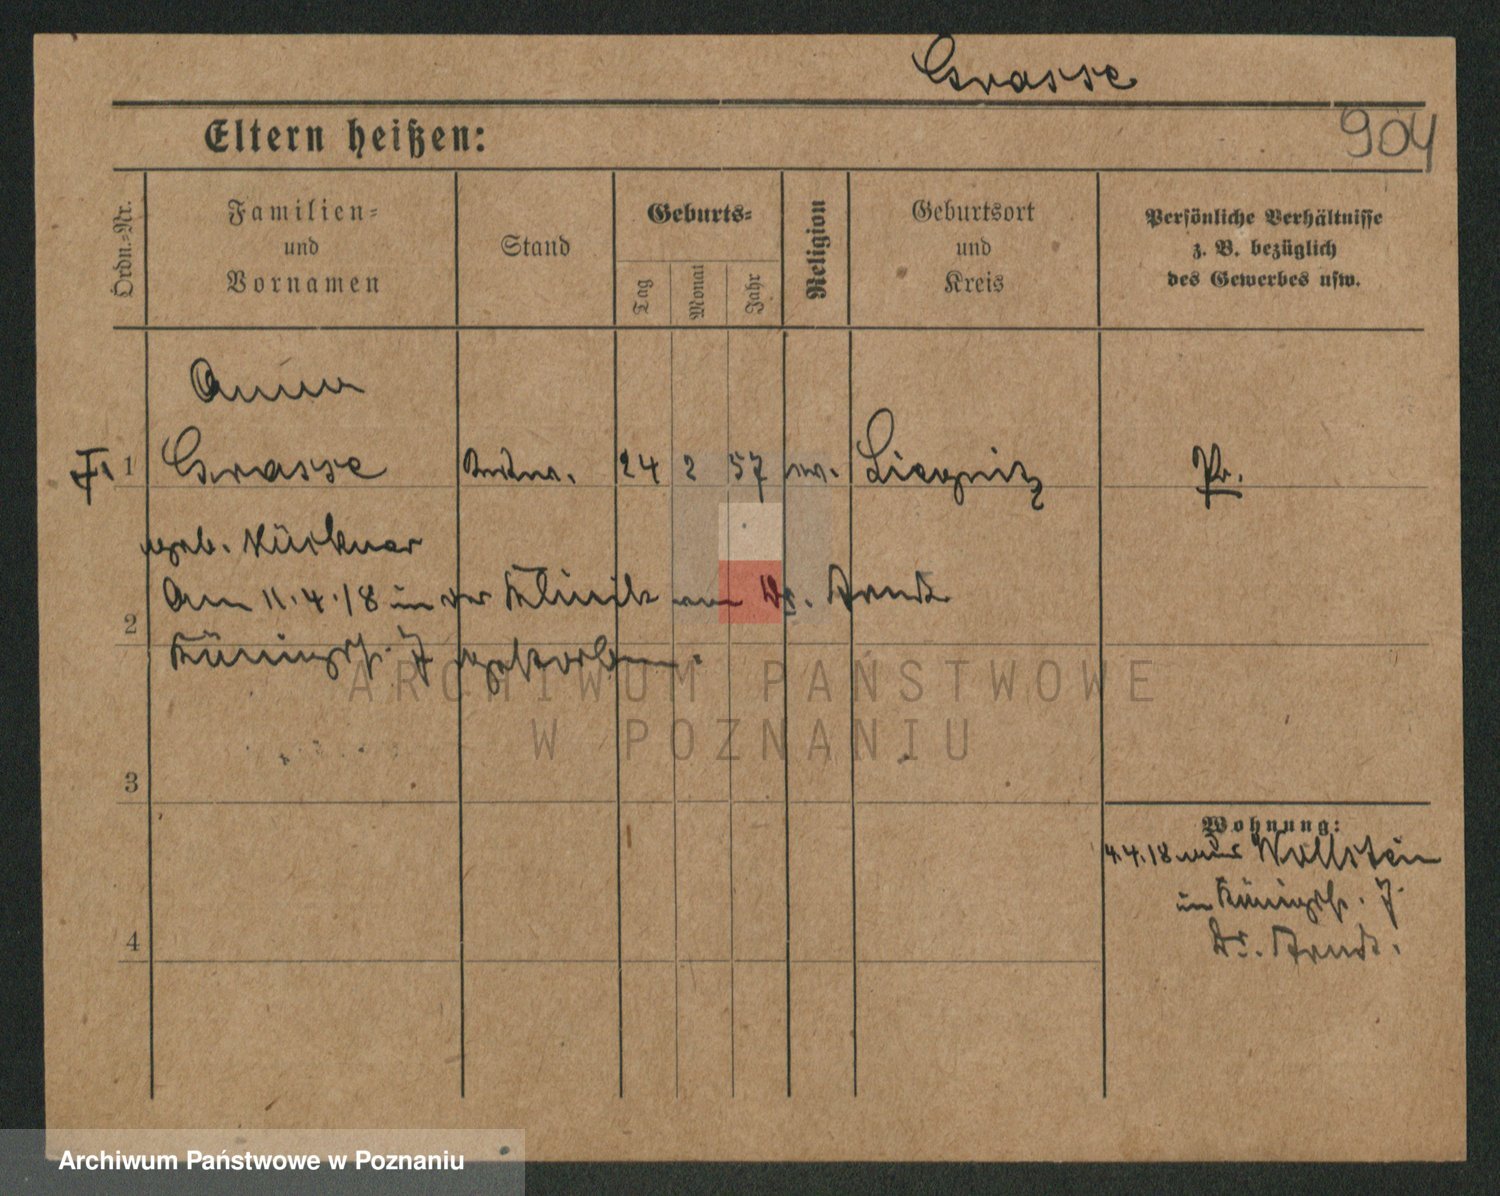 Grasse
904
Eltern heißen:
Ordn.-Nr.
Familien- und Vornamen
Stand
Geburts-
Tag
Monat
Jahr
Religion
Geburtsort und Kreis
Persönliche Verhältnisse z. B. bezüglich des Gewerbes usw.
Anna
Fr. 1 Grasse 24 2 57 ev. Liegnitz Pr.
geb.
Am 11.4.18 in der Klinik von Dr. Arndt
2
Königspl. 7 gestorben.
ARCHIWUM PAŃSTWOWE
W POZNANIU
3
Wohnung:
4.4.18 aus Wollstein
in Königspl. 7
Dr. Arndt.
4
Archiwum Państwowe w Poznaniu